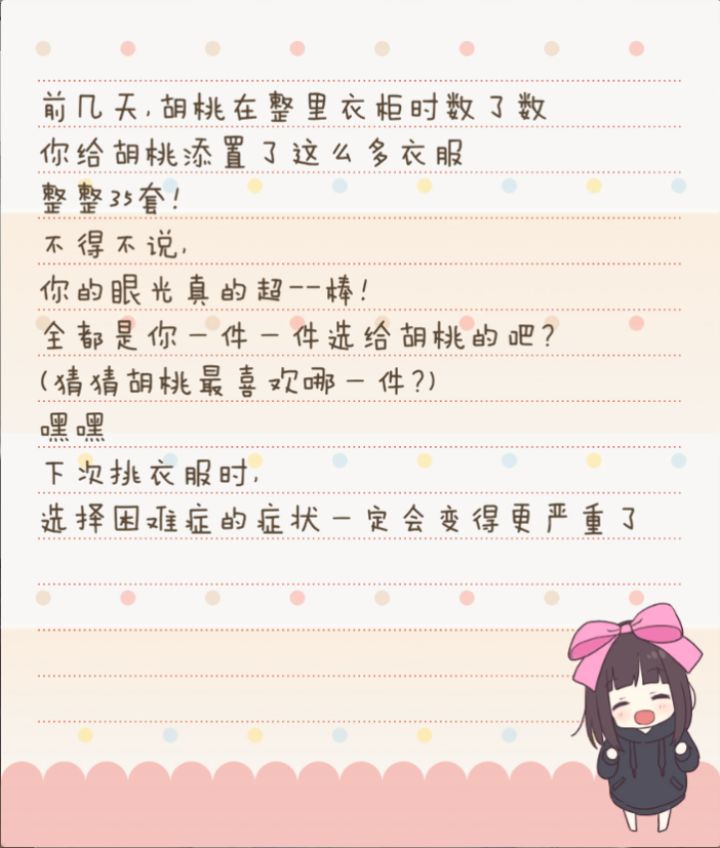 前几天,胡桃在整里衣柜时数了数
你给胡桃添置了这么多衣服
整整35套!
不得不说,
你的眼光真的超一一棒!
全都是你一件一件选给胡桃的吧?
(猜猜胡桃最喜欢哪一件?)
嘿嘿
下次挑衣服时,
选择困难症的症状一定会变得更严重了